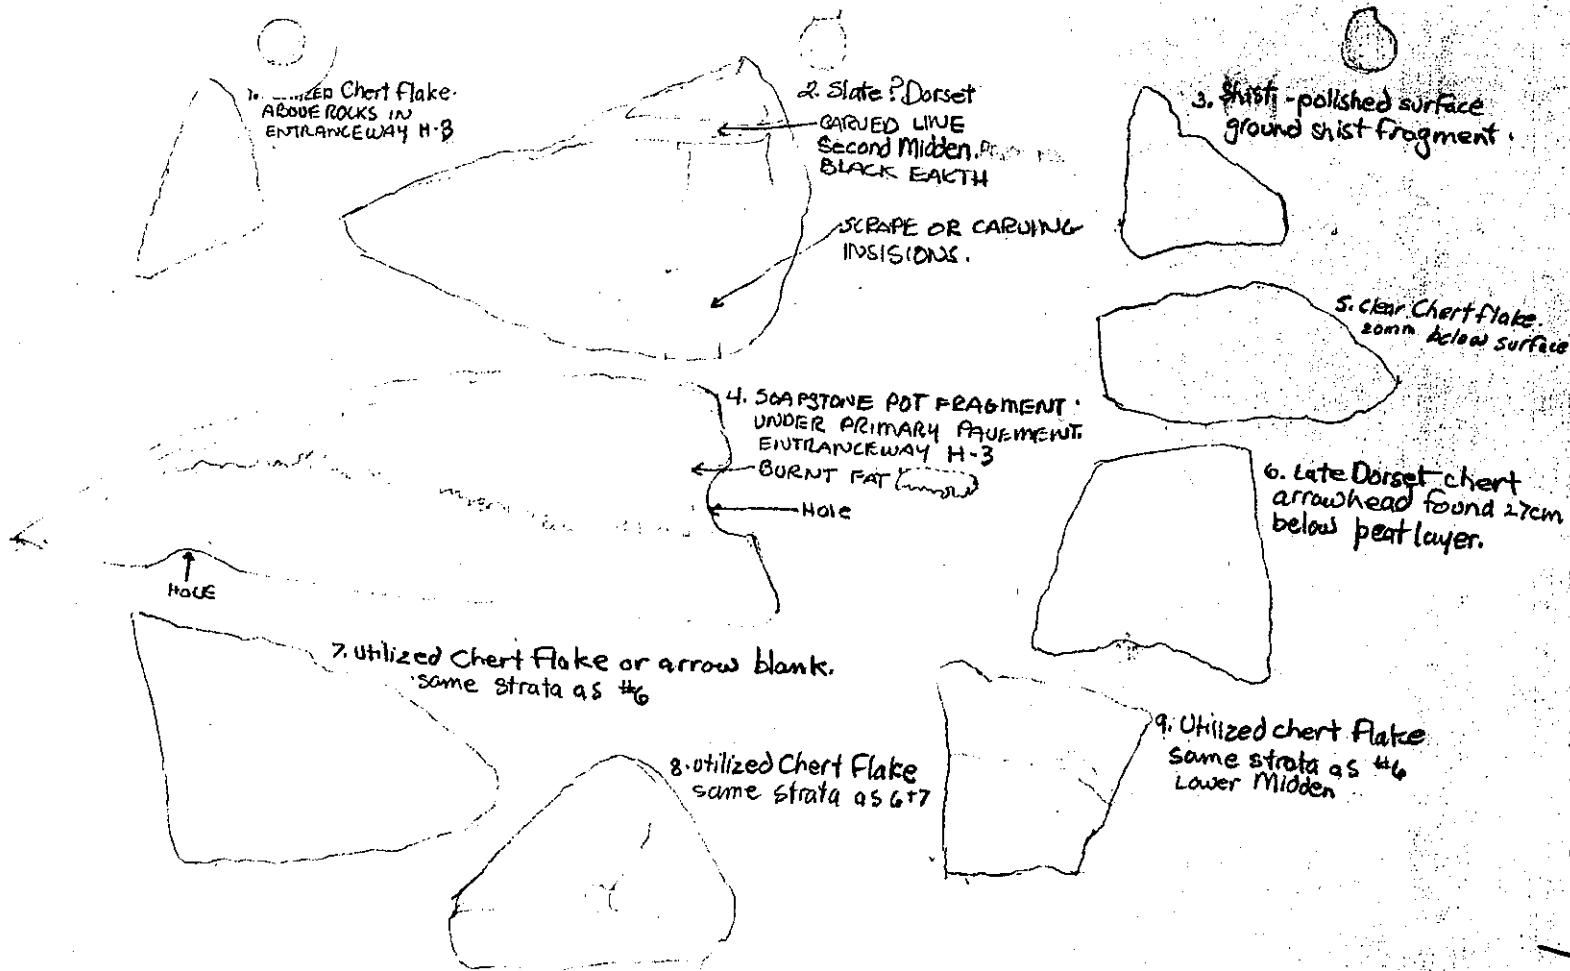 1. Chert flake.
ABOVE ROCKS IN
ENTRANCEWAY H-3
2. Slate? Dorset
CARVED LINE
Second Midden.
BLACK EARTH
SCRAPE OR CARVING
INSISIONS.
3. Shist-polished surface
ground shist fragment.
4. SOAPSTONE POT FRAGMENT.
UNDER PRIMARY PAVEMENT.
ENTRANCEWAY H-3
BURNT FAT
Hole
HOLE
5. Clear Chert flake.
20mm below surface
6. Late Dorset chert
arrowhead found 27cm
below peat layer.
7. Utilized Chert Flake or arrow blank.
same strata as #6
8. utilized Chert Flake
same strata as 6+7
9. Utilized chert Flake
same strata as #6
Lower Midden